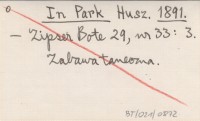 In Park Husz. 1891.
— Zipser Bote 29, nr 33: 3.
Zabawa taneczna.
BT/021/0872